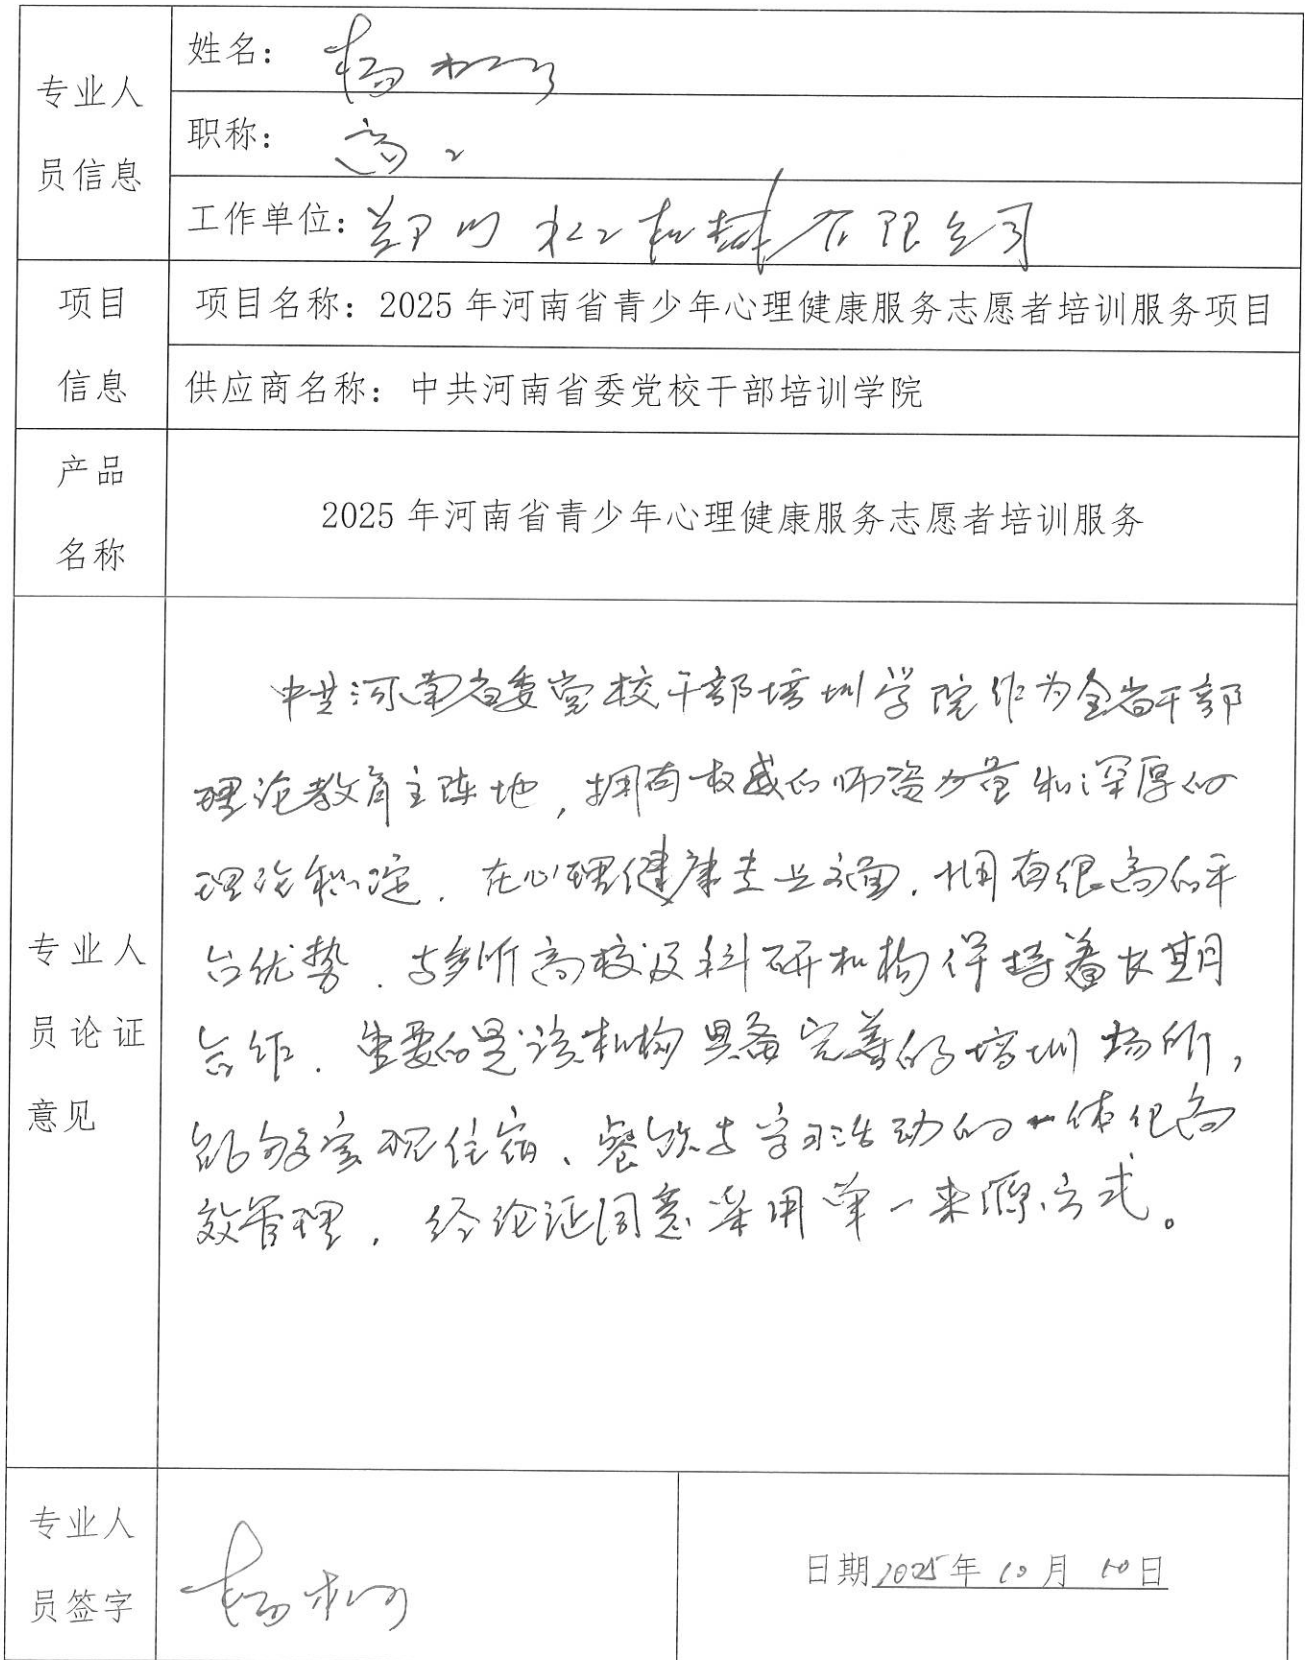 专业人
员信息
姓名：
职称：高工
工作单位：郑州 机械有限公司
项目
信息
项目名称：2025 年河南省青少年心理健康服务志愿者培训服务项目
供应商名称：中共河南省委党校干部培训学院
产品
名称
2025 年河南省青少年心理健康服务志愿者培训服务
专业人
员论证
意见
中共河南省委党校干部培训学院作为全省干部
理论教育主阵地，拥有权威的师资力量和深厚的
理论积淀．在心理健康专业方面．拥有很高的平
台优势．与多所高校及科研机构保持着长期
合作．重要的是该机构具备完善的培训场所，
能够实现住宿、餐饮与学习活动的一体化高
效管理．经论证同意采用单一来源方式。
专业人
员签字
日期 2025年 10月 10日